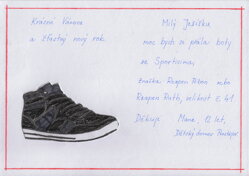 Krásné Vánoce
a šťastný nový rok.
Milý Ježíšku
moc bych si přála boty
ze Sportisima,
značka Reapen Pilon nebo
Reapen Ruth, velikost č. 41
Děkuji Marie, 12 let,
Dětský domov